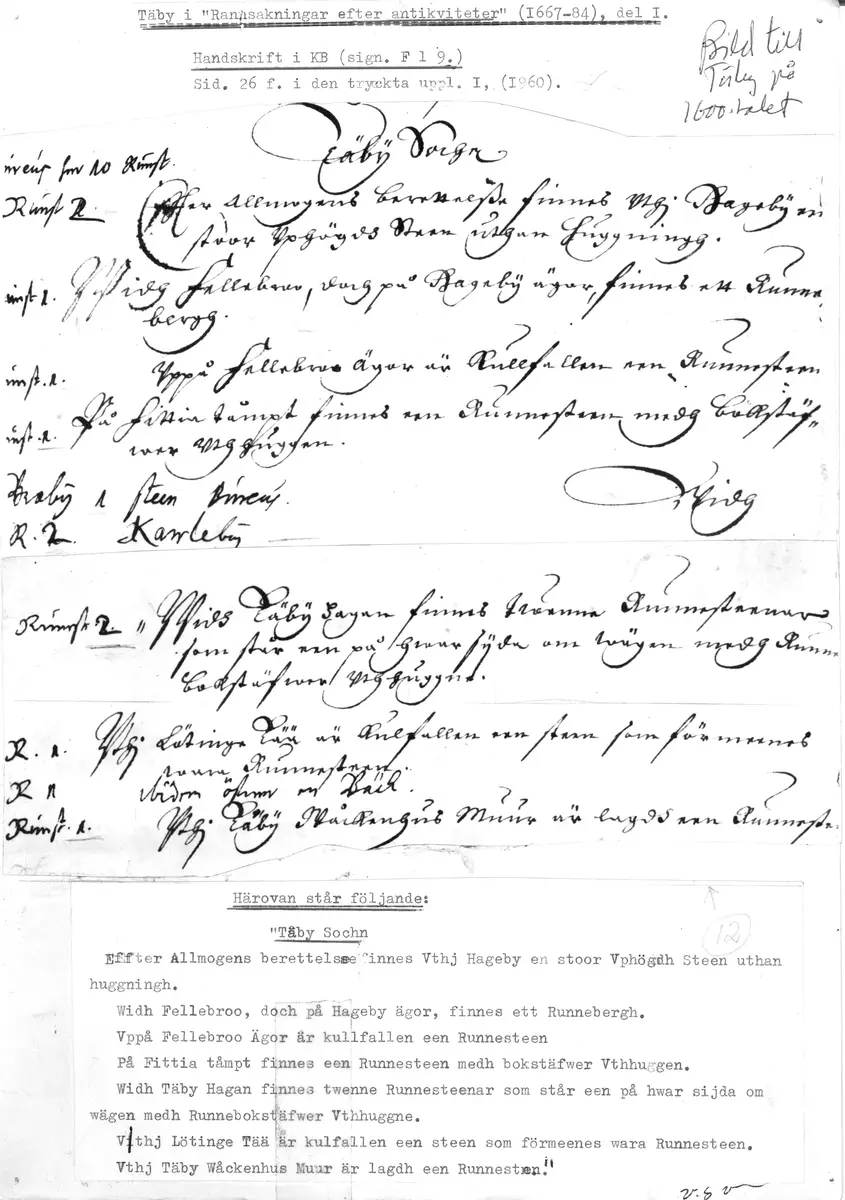 Täby i "Rannsakningar efter antikviteter" (1667-84), del I.
Handskrift i KB (sign. F l 9.)
Sid. 26 f. i den tryckta uppl. I, (1960).
Bild till
Täby på
1600-talet
Täby Sochn
Runst 2
Effter Allmogens berettelsse finnes Vthj Hageby en
stoor Vphögdh Steen uthan huggningh.
Widh Fellebroo, doch på Hageby ägor, finnes ett Runne-
bergh.
Vppå Fellebroo Ägor är Kullfallen een Runnesteen
På Fittia tåmpt finnes een Runnesteen medh bokstäf-
wer Vthhuggen.
1 steen
Widh
R. 2. Karleby
Runst 2. Widh Täby Hagan finnes twenne Runnesteenar
som står een på hwar sijda om wägen medh Runne
bokstäfwer Vthhuggne.
R. 1. Vthj Lötinge Tää är Kulfallen een steen som förmeenes
wara Runnesteen.
R 1
Runst. 1. Vthj Täby Wåckenhus Muur är lagdh een Runneste
Härovan står följande:
"Täby Sochn
12
Effter Allmogens berettelsse finnes Vthj Hageby en stoor Vphögdh Steen uthan
huggningh.
Widh Fellebroo, doch på Hageby ägor, finnes ett Runnebergh.
Vppå Fellebroo Ägor är kullfallen een Runnesteen
På Fittia tåmpt finnes een Runnesteen medh bokstäfwer Vthhuggen.
Widh Täby Hagan finnes twenne Runnesteenar som står een på hwar sijda om
wägen medh Runnebokstäfwer Vthhuggne.
Vthj Lötinge Tää är kulfallen een steen som förmeenes wara Runnesteen.
Vthj Täby Wåckenhus Muur är lagdh een Runnesten."